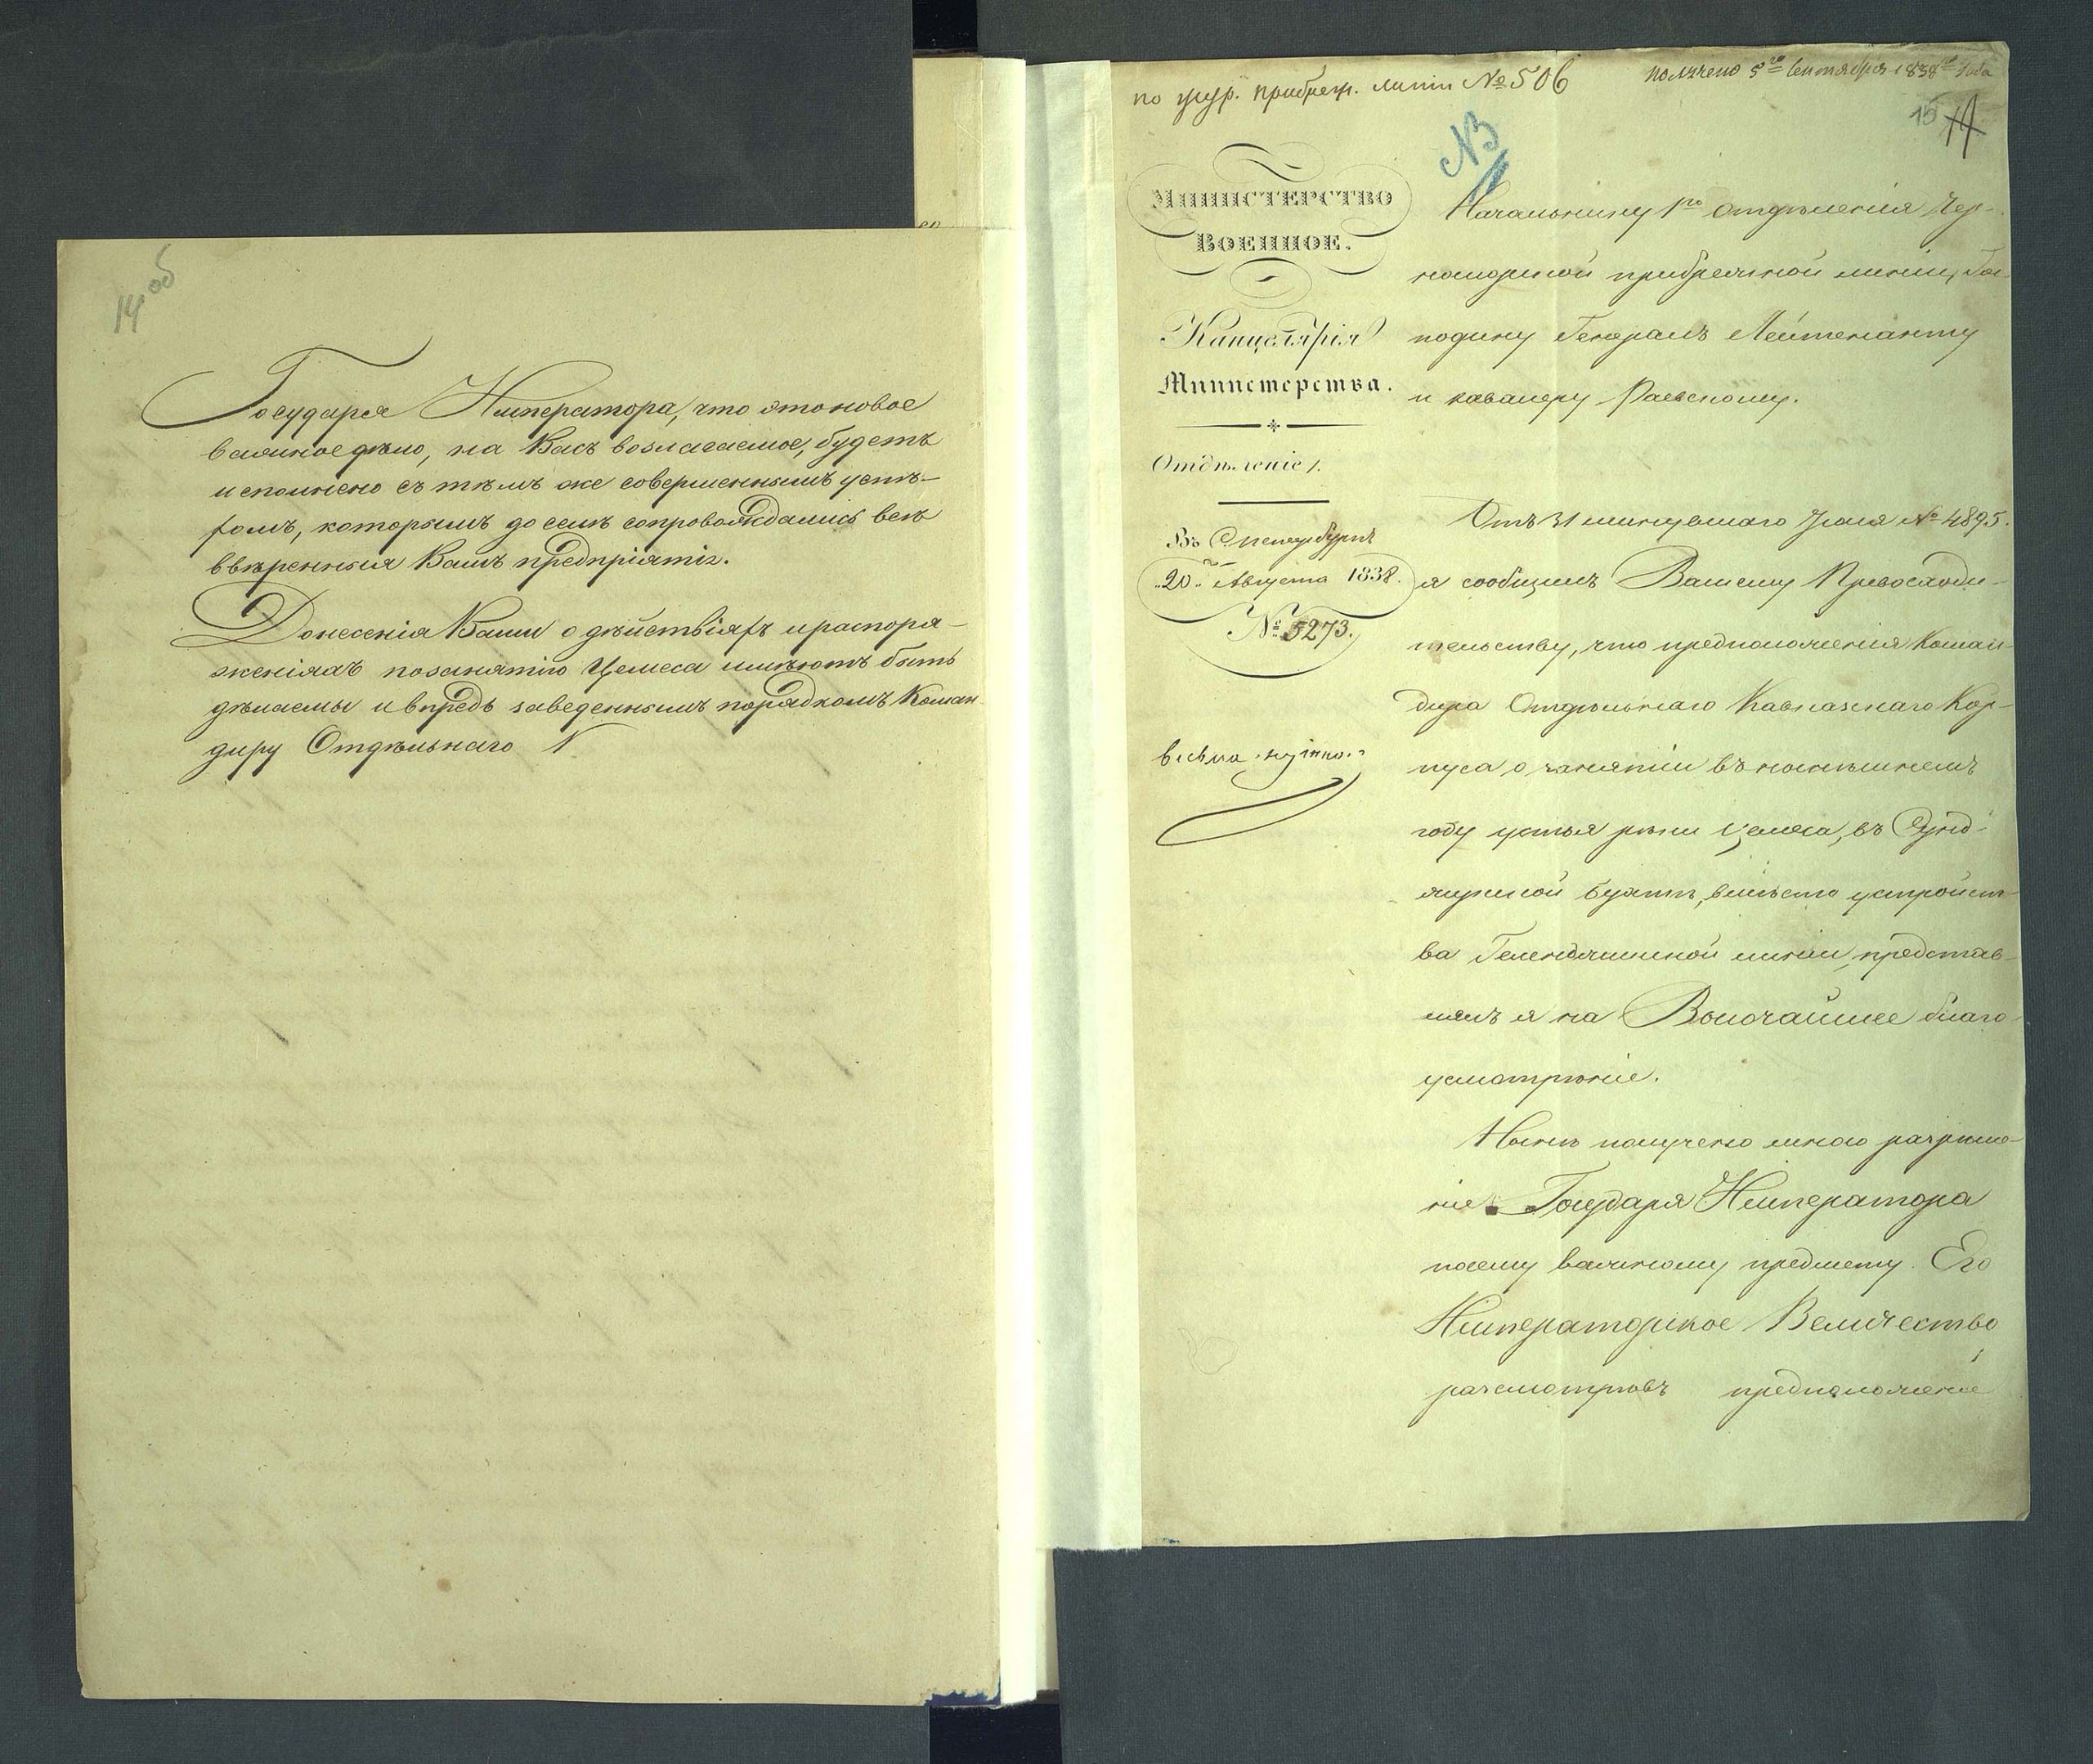 14 об
Государя Императора, что это новое
важное дѣло, на Васъ возлагаемое, будетъ
исполнено съ тѣмъ же совершеннымъ успѣ-
хомъ, которымъ до селѣ сопровождались всѣ
ввѣренныя Вамъ предпріятія.
Донесенія Ваши о дѣйствіяхъ и распоря-
женіяхъ по занятію Цемеса имѣютъ быть
дѣлаемы и впредь заведеннымъ порядкомъ Коман-
диру Отдѣльнаго
по жур. прибреж. линіи № 506
получено 5го Сентября 1838го года
15
14
МИНИСТЕРСТВО
ВОЕННОЕ.
Канцелярія
Министерства.
Отдѣленіе 1.
Въ С. Петербургѣ
„20“ Августа 1838.
№ 5273.
весьма нужное
Начальнику 1го отдѣленія Чер-
номорской прибрежной линіи, Гос-
подину Генералъ Лейтенанту
и кавалеру Раевскому.
Отъ 31 минувшаго Іюля № 4895.
я сообщилъ Вашему Превосходи-
тельству, что предположенія Коман-
дира Отдѣльнаго Кавказскаго Кор-
пуса о занятіи въ нынѣшнемъ
году устья рѣки Цемеса, въ Суд-
жукской бухтѣ, вмѣсто устройст-
ва Геленджикской линіи, представ-
лялъ я на Высочайшее благо-
усмотрѣніе.
Нынѣ получено мною разрѣше-
ніе Государя Императора
по сему важному предмету. Его
Императорское Величество,
разсмотрѣвъ предположеніе